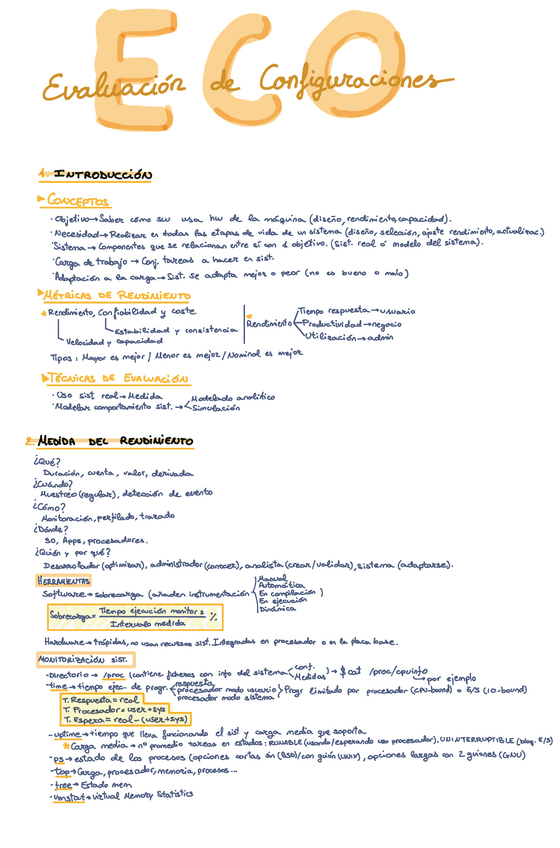 ECO
Evaluación de Configuraciones
1. INTRODUCCIÓN
CONCEPTOS
· Objetivo → Saber cómo sw usa hw de la máquina (diseño, rendimiento, capacidad).
· Necesidad → Realizar en todas las etapas de vida de un sistema (diseño, selección, ajuste rendimiento, actualizac.)
· Sistema → Componentes que se relacionan entre sí con 1 objetivo. (Sist. real o modelo del sistema).
· Carga de trabajo → Conj. tareas a hacer en sist.
· Adaptación a la carga → Sist. se adapta mejor o peor (no es bueno o malo)
MÉTRICAS DE RENDIMIENTO
Rendimiento, Confiabilidad y coste
Estabilidad y consistencia
Velocidad y capacidad
Rendimiento
Tiempo respuesta → usuario
Productividad → negocio
Utilización → admin
Tipos: Mayor es mejor / Menor es mejor / Nominal es mejor
TÉCNICAS DE EVALUACIÓN
· Uso sist real → Medida
· Modelar comportamiento sist. →
Modelado analítico
Simulación
2. MEDIDA DEL RENDIMIENTO
¿Qué?
Duración, cuenta, valor, derivada
¿Cuándo?
Muestreo (regular), detección de evento
¿Cómo?
Monitorización, perfilado, trazado
¿Dónde?
SO, Apps, procesadores.
¿Quién y por qué?
Desarrollador (optimizar), administrador (conocer), analista (crear/validar), sistema (adaptarse).
HERRAMIENTAS
Software → sobrecarga (añaden instrumentación
Manual
Automática
En compilación )
En ejecución
Dinámica
Sobrecarga = Tiempo ejecución monitor s / Intervalo medida %
Hardware → + rápidas, no usan recursos sist. Integradas en procesador o en la placa base.
MONITORIZACIÓN SIST.
- Directorio → /proc (contiene ficheros con info del sistema
conf.
Medidas ) → $ cat /proc/cpuinfo
por ejemplo
- time → tiempo ejec. de progr.
respuesta
procesador modo usuario
procesador modo sistema
Progr limitado por procesador (CPU-bound) o E/S (IO-bound)
T. Respuesta = real
T. Procesador = user + sys
T. Espera = real - (user + sys)
- uptime → tiempo que lleva funcionando el sist y carga media que soporta
* Carga media → nº promedio tareas en estados: RUNABLE (usando/esperando uso procesador), UNINTERRUPTIBLE (bloq. E/S)
- ps → estado de los procesos (opciones cortas sin (BSD)/con guión (UNIX), opciones largas con 2 guiones (GNU)
- top → Carga, procesador, memoria, procesos...
- free → Estado mem
- vmstat → virtual Memory Statistics